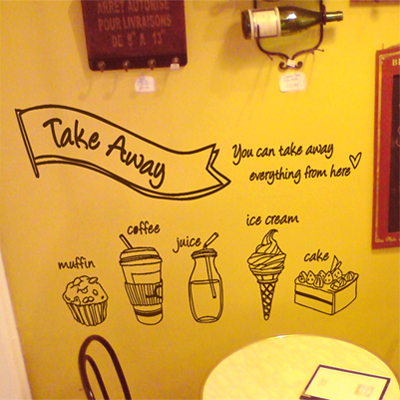 ARRET AUTORISE
POUR LIVRAISONS
DE 8H A 13H
Take Away
You can take away
everything from here
muffin
coffee
juice
ice cream
cake